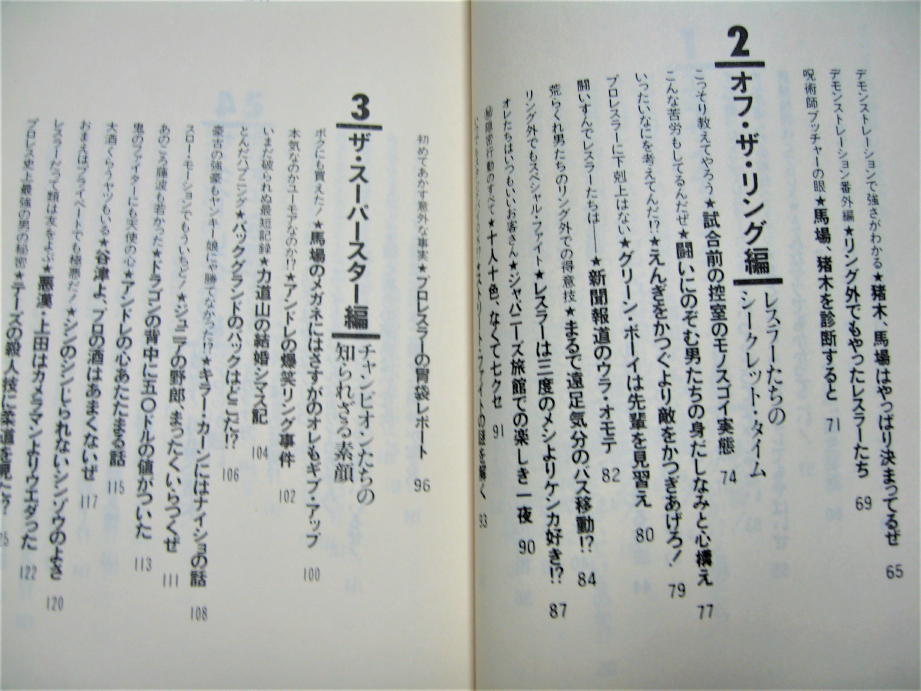 デモンストレーションで強さがわかる★猪木、馬場はやっぱり決まってるぜ 65
デモンストレーション番外編★リング外でもやったレスラーたち 69
呪術師ブッチャーの眼★馬場、猪木を診断すると 71
2 オフ・ザ・リング編 レスラーたちのシークレット・タイム
こっそり教えてやろう★試合前の控室のモノスゴイ実態 74
こんな苦労もしてるんだぜ★闘いにのぞむ男たちの身だしなみと心構え 77
いったいなにを考えてんだ!?★えんぎをかつぐより敵をかつぎあげろ! 79
プロレスラーに下剋上はない★グリーン・ボーイは先輩を見習え 80
闘いすんでレスラーたちは――★新聞報道のウラ・オモテ 82
荒らくれ男たちのリング外での得意技★まるで遠足気分のバス移動!? 84
リング外でもスペシャル・ファイト★レスラーは三度のメシよりケンカ好き!? 87
オレたちはいつもいいお客さん★ジャパニーズ旅館での楽しき一夜 90
㊙隠密行動のすべて★十人十色、なくて七クセ 91
ストリート・ファイトの謎を解く 93
初めてあかす意外な事実★プロレスラーの胃袋レポート 96
3 ザ・スーパースター編 チャンピオンたちの知られざる素顔
ボクにも買えた!★馬場のメガネにはさすがのオレもギブ・アップ 100
本気なのかユーモアなのか!?★アンドレの爆笑リング事件 102
いまだ破られぬ最短記録★力道山の結婚シマス記 104
とんだハプニング★バックランドのバックはどこだ!? 106
蒙古の強豪もヤンキー娘にゃ勝てなかった!?★キラー・カーンにはナイショの話 108
スロー・モーションでもういちど!★ジュニアの野郎、まったくいらつくぜ 111
あのころ藤波も若かった★ドラゴンの背中に五〇ドルの値がついた 113
鬼のファイターにも天使の心★アンドレの心あたたまる話 115
大酒くらうヤツもいる★谷津よ、プロの酒はあまくないぜ 117
おまえはプライベートでも極悪だ!★シンのシンじられないシンソウのよさ 120
レスラーだって類は友をよぶ★悪漢・上田はカメラマンよりウエダった 122
プロレス史上最強の男の秘密★テーズの殺人技に柔道を見た?